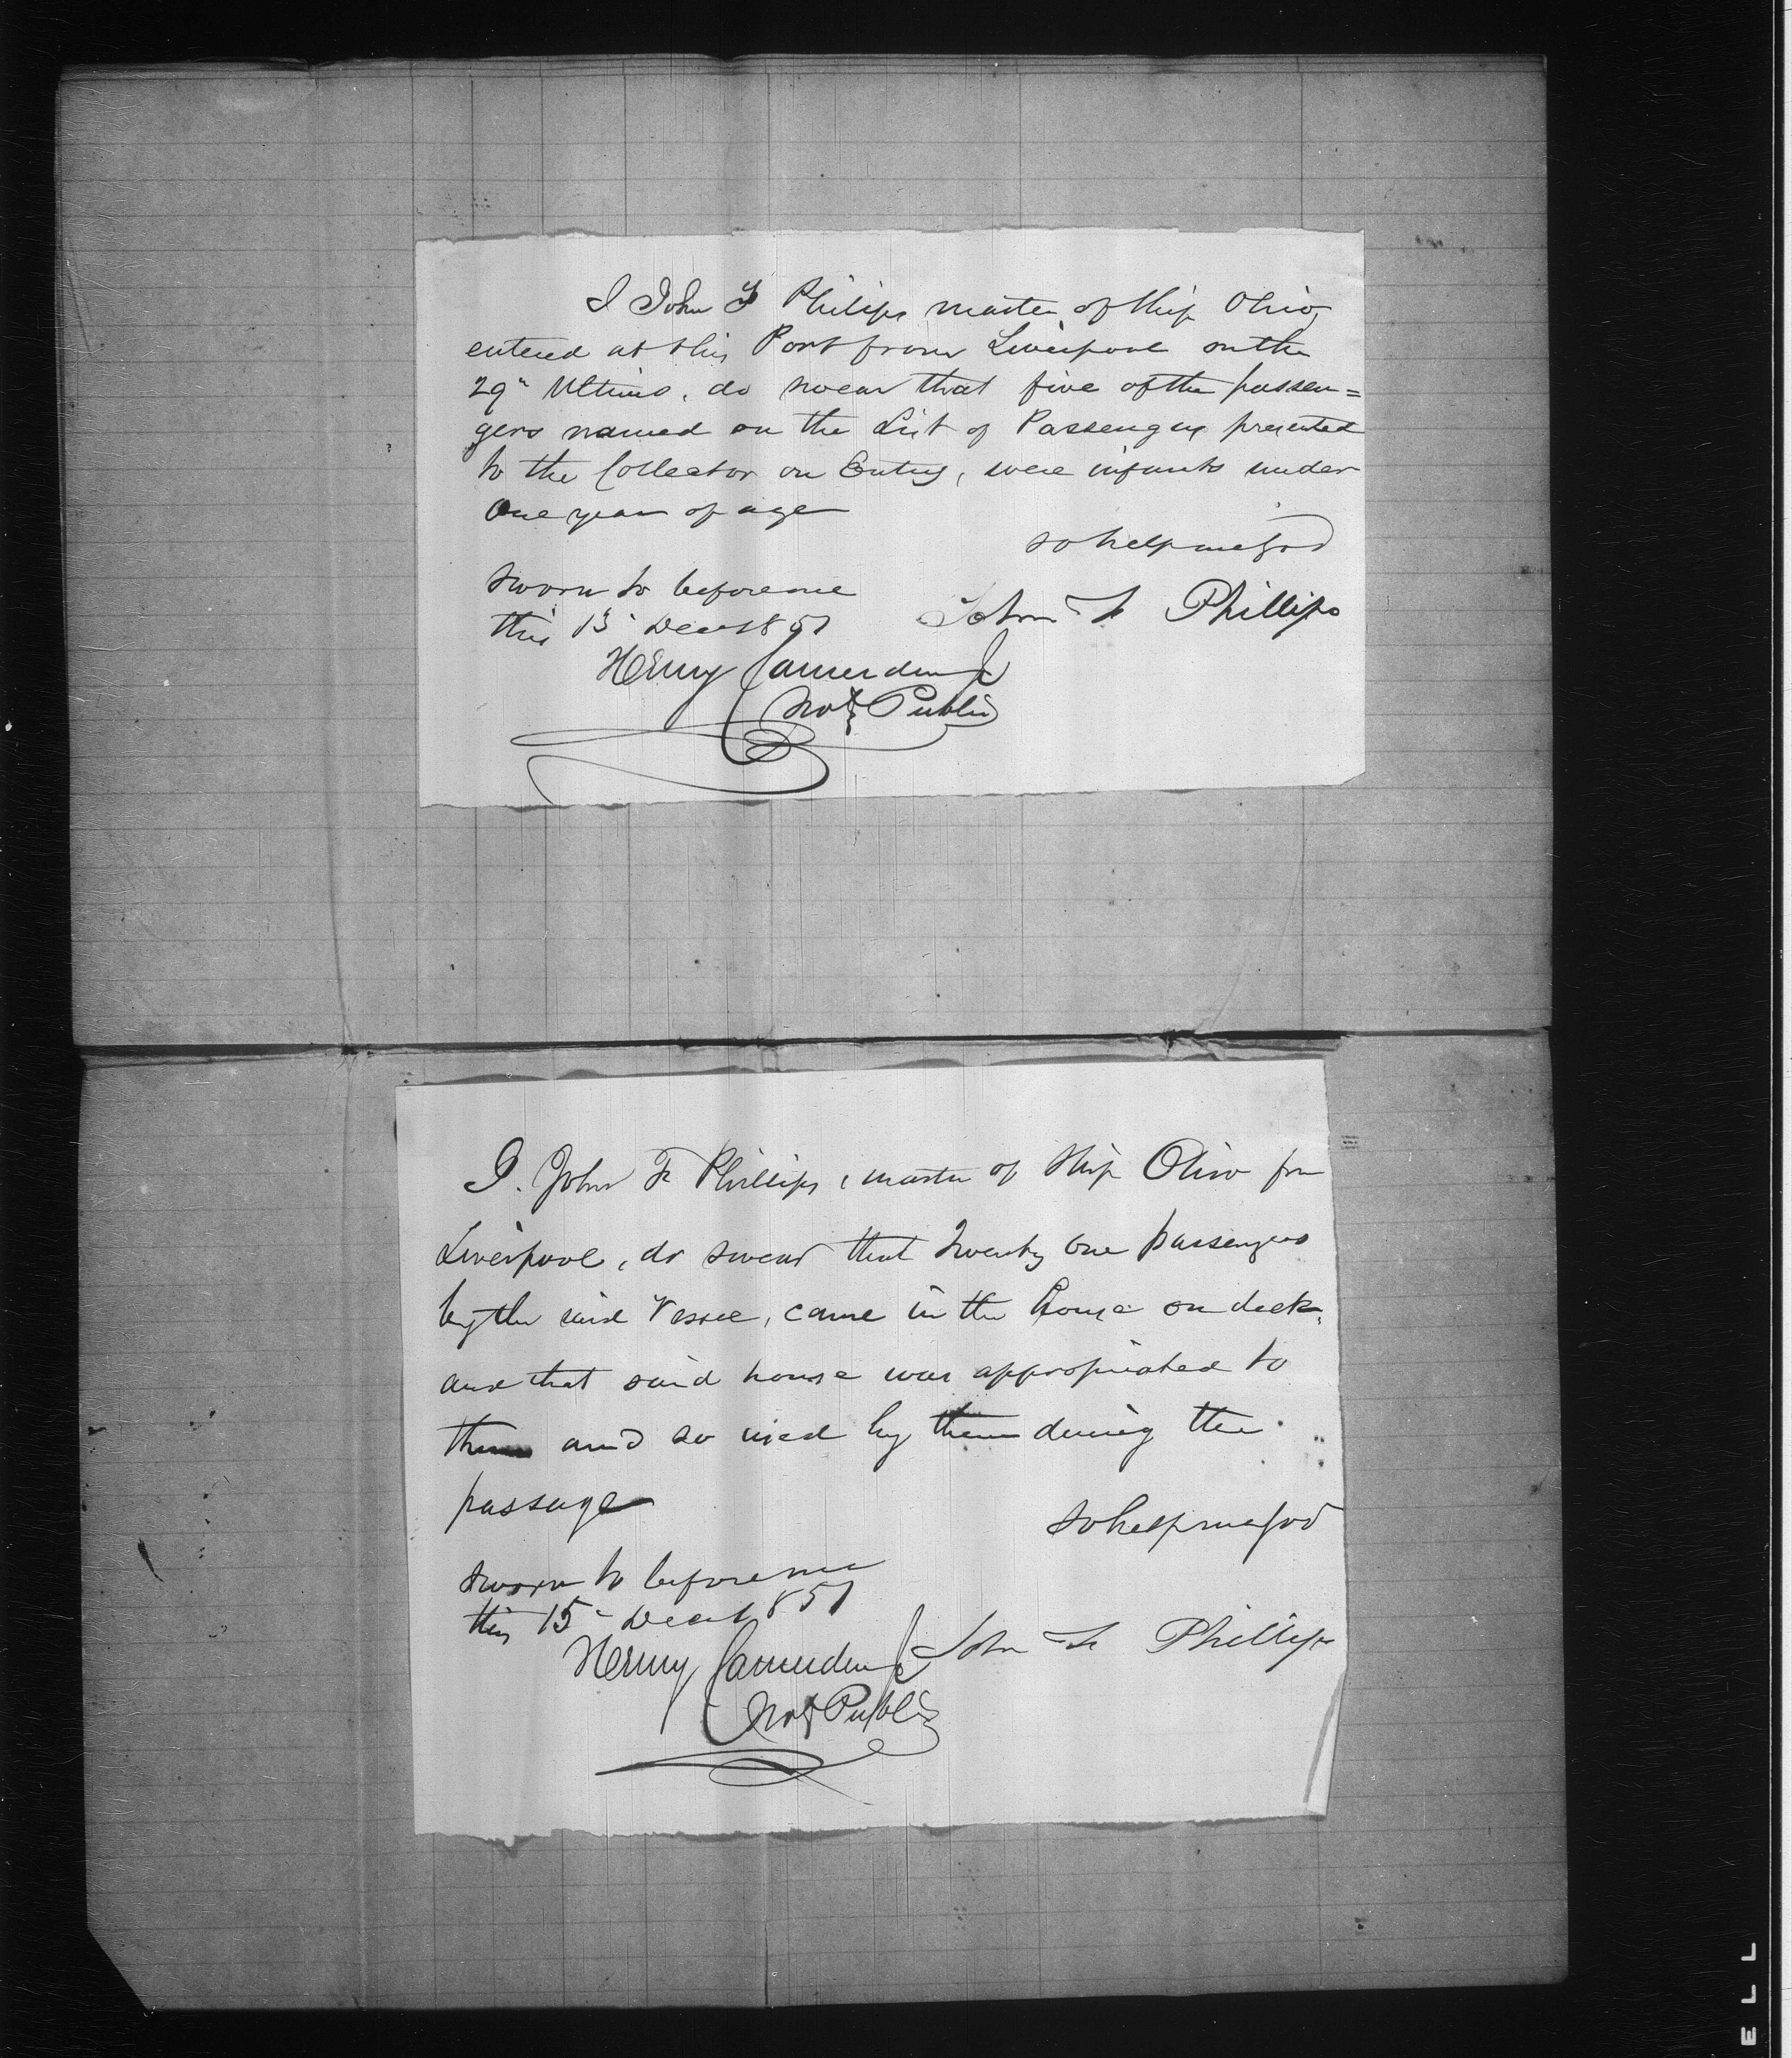 I John F Philips master of Ship Ohio,
entered at this Port from Liverpool on the
29" Ultimo, do swear that five of the passen=
gers named on the List of Passengers presented
to the Collector on Entry, were infants under
One year of age
so help me God
sworn to before me
this 15" Decr 1851
John F Phillips
Henry Camerden Jr
Not Public
I. John F Phillips, master of Ship Ohio from
Liverpool, do swear that twenty one passengers
by the said Vessel, came in the house on deck,
and that said house was appropriated to
them and so used by them during the
passage
so help me God
sworn to before me
this 15" Decr 1851
John F Phillips
Henry Camerden Jr
Not Public
E L L